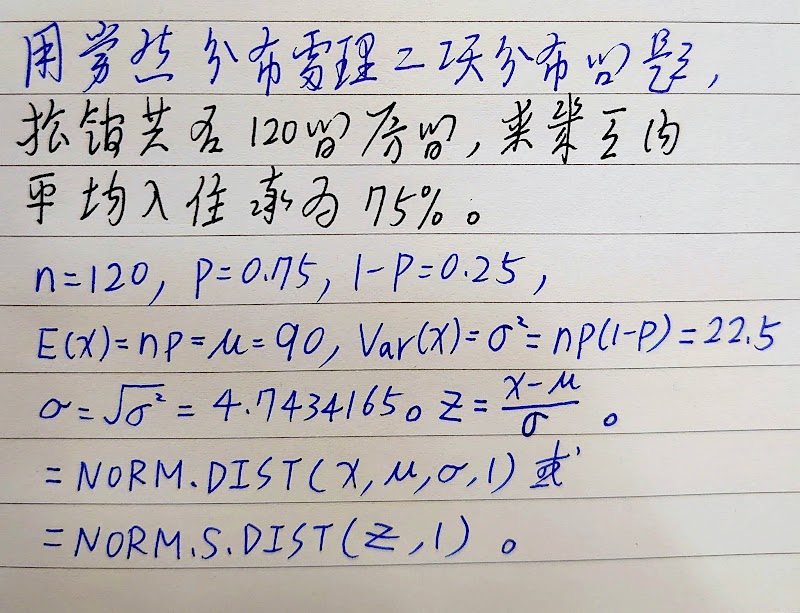 用常態分布處理二項分布問題，
旅館共有120間房間，來業主的
平均入住率為75%。
n=120, P=0.75, 1-P=0.25,
E(X)=np=μ=90, Var(X)=σ²=np(1-p)=22.5
σ=√σ²=4.7434165。z=(x-μ)/σ。
=NORM.DIST(x,μ,σ,1)或
=NORM.S.DIST(z,1)。